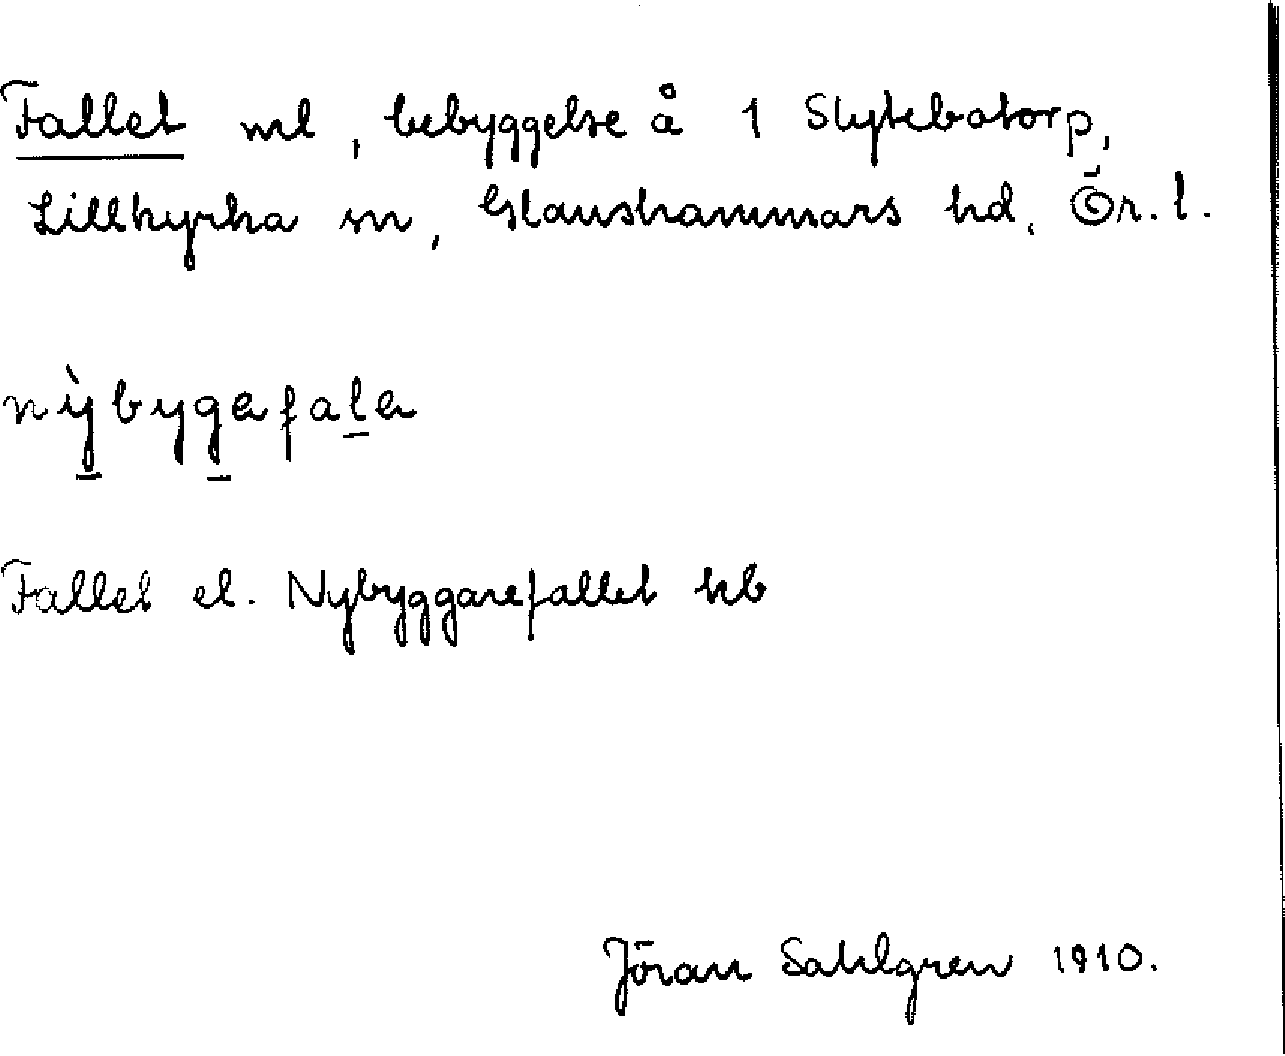 Fallet ml, bebyggelse å 1 Slytebotorp,
Lillkyrka sn, Glanshammars hd, Ör. l.
nỳbygefale
Fallet el. Nybyggarefallet hb
Jöran Sahlgren 1910.